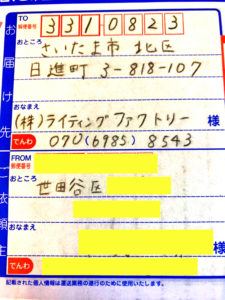 TO
郵便番号 331-0823
おところ
さいたま市 北区
日進町 3-818-107
おなまえ
(株)ライティングファクトリー 様
でんわ 070(6985)8543
お届け先
FROM
郵便番号
おところ
世田谷区
おなまえ
様
でんわ
ご依頼主
記載された個人情報は運送業務の遂行のために使用いたします。